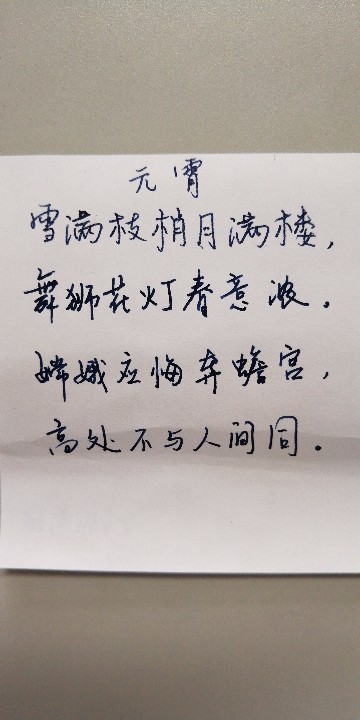 元宵
雪满枝梢月满楼，
舞狮花灯春意浓。
嫦娥应悔奔蟾宫，
高处不与人间同。